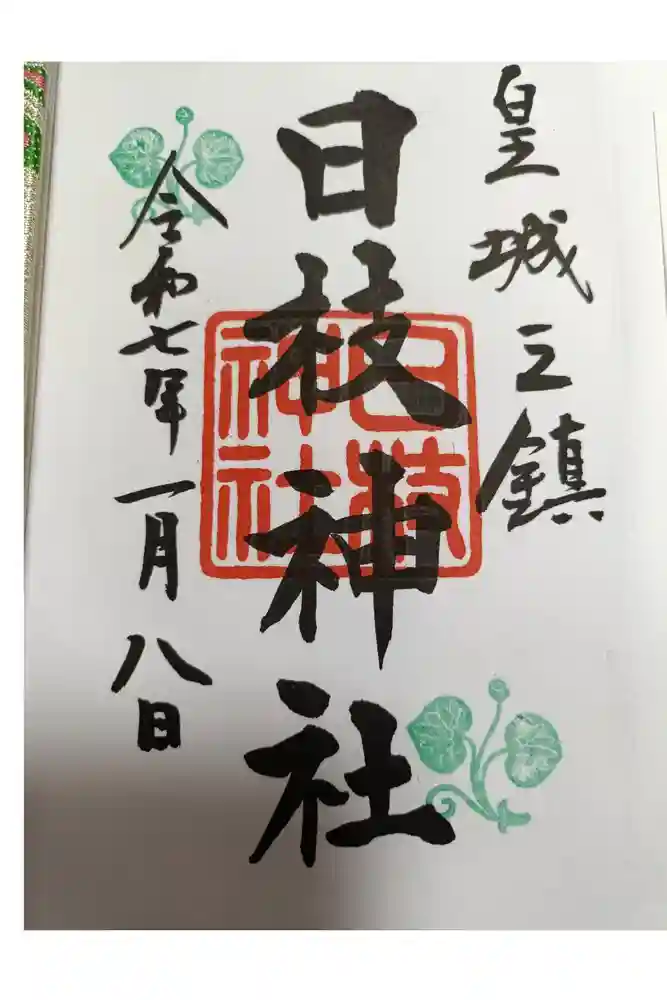 皇城之鎮
日枝神社
日枝神社
令和七年一月八日